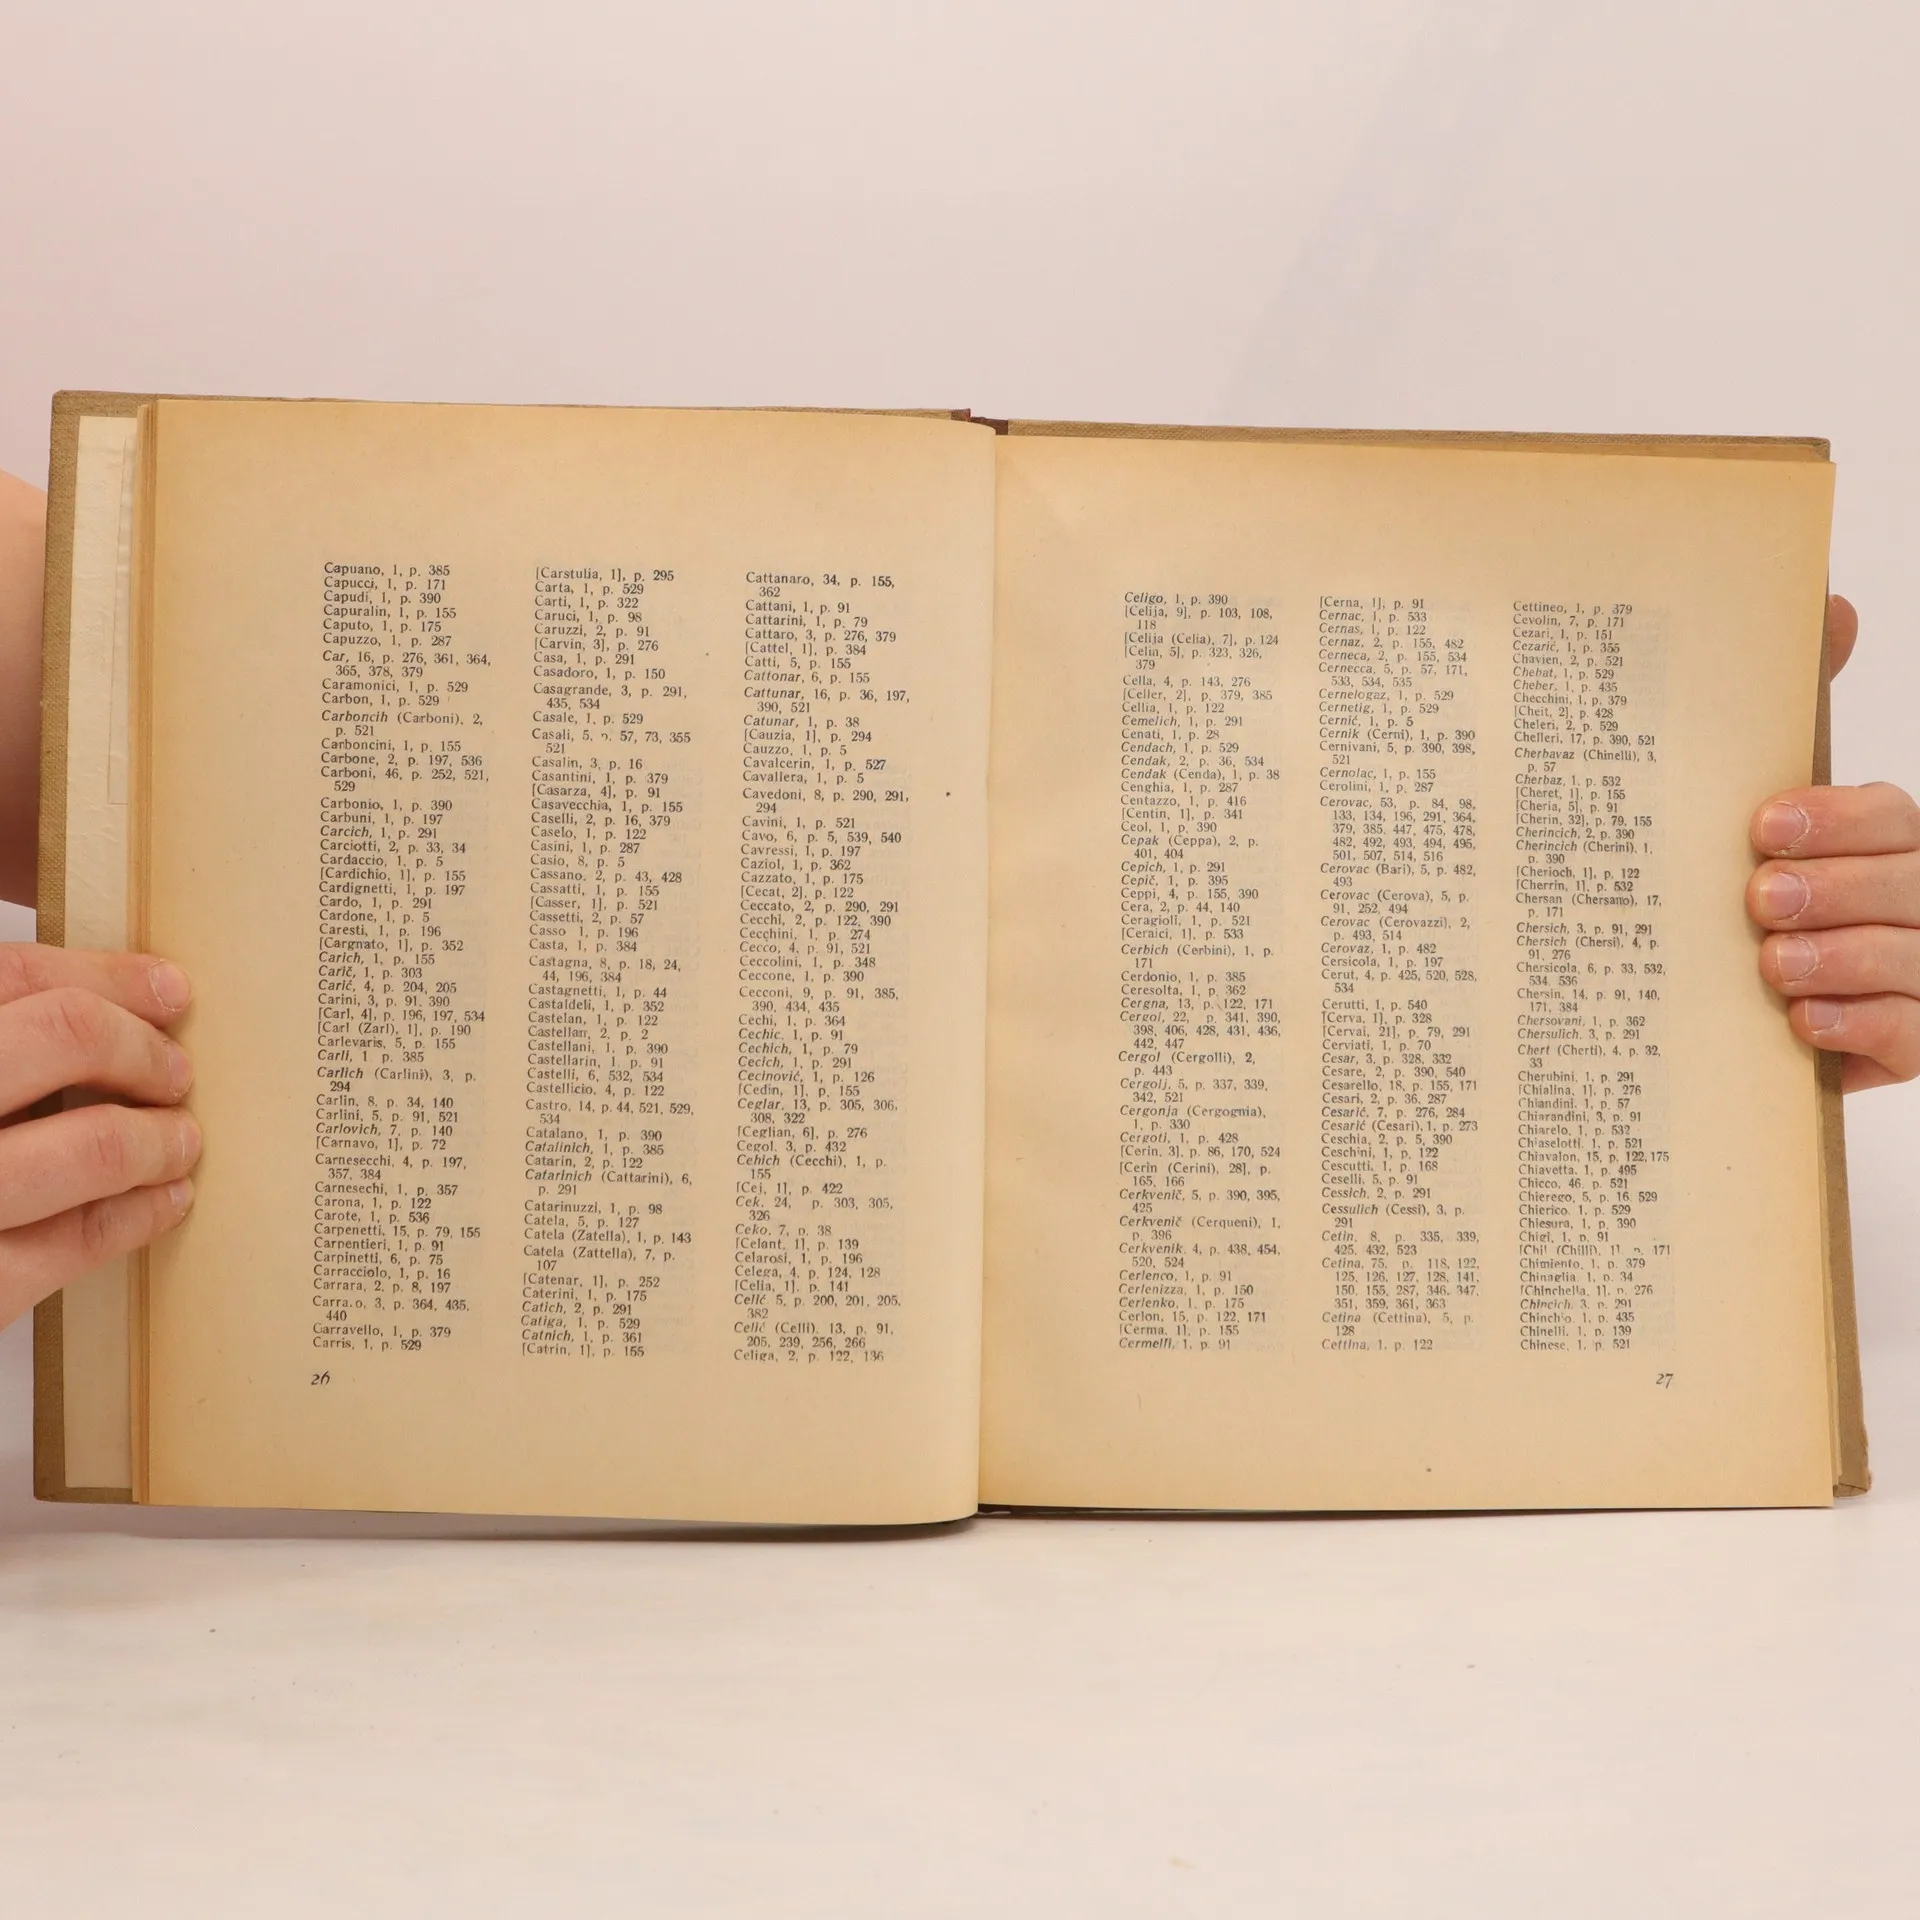 Capuano, 1, p. 385
Capucci, 1, p. 171
Capudi, 1, p. 390
Capuralin, 1, p. 155
Caputo, 1, p. 175
Capuzzo, 1, p. 287
Car, 16, p. 276, 361, 364,
365, 378, 379
Caramonici, 1, p. 529
Carbon, 1, p. 529
Carboncih (Carboni), 2,
p. 521
Carboncini, 1, p. 155
Carbone, 2, p. 197, 536
Carboni, 46, p. 252, 521,
529
Carbonio, 1, p. 390
Carbuni, 1, p. 197
Carcich, 1, p. 291
Carciotti, 2, p. 33, 34
Cardaccio, 1, p. 5
[Cardichio, 1], p. 155
Cardignetti, 1, p. 197
Cardo, 1, p. 291
Cardone, 1, p. 5
Caresti, 1, p. 196
[Cargnato, 1], p. 352
Carich, 1, p. 155
Carič, 1, p. 303
Carić, 4, p. 204, 205
Carini, 3, p. 91, 390
[Carl, 4], p. 196, 197, 534
[Carl (Zarl), 1], p. 190
Carlevaris, 5, p. 155
Carli, 1 p. 385
Carlich (Carlini), 3, p.
294
Carlin, 8, p. 34, 140
Carlini, 5, p. 91, 521
Carlovich, 7, p. 140
[Carnavo, 1], p. 72
Carnesecchi, 4, p. 197,
357, 384
Carnesechi, 1, p. 357
Carona, 1, p. 122
Carote, 1, p. 536
Carpenetti, 15, p. 79, 155
Carpentieri, 1, p. 91
Carpinetti, 6, p. 75
Carracciolo, 1, p. 16
Carrara, 2, p. 8, 197
Carra.o, 3, p. 364, 435,
440
Carravello, 1, p. 379
Carris, 1, p. 529
[Carstulia, 1], p. 295
Carta, 1, p. 529
Carti, 1, p. 322
Caruci, 1, p. 98
Caruzzi, 2, p. 91
[Carvin, 3], p. 276
Casa, 1, p. 291
Casadoro, 1, p. 150
Casagrande, 3, p. 291,
435, 534
Casale, 1, p. 529
Casali, 5, p. 57, 73, 355
521
Casalin, 3, p. 16
Casantini, 1, p. 379
[Casarza, 4], p. 91
Casavecchia, 1, p. 155
Caselli, 2, p. 16, 379
Caselo, 1, p. 122
Casini, 1, p. 287
Casio, 8, p. 5
Cassano, 2, p. 43, 428
Cassatti, 1, p. 155
[Casser, 1], p. 521
Cassetti, 2, p. 57
Casso 1, p. 196
Casta, 1, p. 384
Castagna, 8, p. 18, 24,
44, 196, 384
Castagnetti, 1, p. 44
Castaldeli, 1, p. 352
Castelan, 1, p. 122
Castellan, 2, p. 2
Castellani, 1, p. 390
Castellarin, 1, p. 91
Castelli, 6, 532, 534
Castellicio, 4, p. 122
Castro, 14, p. 44, 521, 529,
534
Catalano, 1, p. 390
Catalinich, 1, p. 385
Catarin, 2, p. 122
Catarinich (Cattarini), 6,
p. 291
Catarinuzzi, 1, p. 98
Catela, 5, p. 127
Catela (Zatella), 1, p. 143
Catela (Zattella), 7, p.
107
[Catenar, 1], p. 252
Caterini, 1, p. 175
Catich, 2, p. 291
Catiga, 1, p. 529
Catnich, 1, p. 361
[Catrin, 1], p. 155
Cattanaro, 34, p. 155,
362
Cattani, 1, p. 91
Cattarini, 1, p. 79
Cattaro, 3, p. 276, 379
[Cattel, 1], p. 384
Catti, 5, p. 155
Cattonar, 6, p. 155
Cattunar, 16, p. 36, 197,
390, 521
Catunar, 1, p. 38
[Cauzia, 1], p. 294
Cauzzo, 1, p. 5
Cavalcerin, 1, p. 527
Cavallera, 1, p. 5
Cavedoni, 8, p. 290, 291,
294
Cavini, 1, p. 521
Cavo, 6, p. 5, 539, 540
Cavressi, 1, p. 197
Caziol, 1, p. 362
Cazzato, 1, p. 175
[Cecat, 2], p. 122
Ceccato, 2, p. 290, 291
Cecchi, 2, p. 122, 390
Cecchini, 1, p. 274
Cecco, 4, p. 91, 521
Ceccolini, 1, p. 348
Ceccone, 1, p. 390
Cecconi, 9, p. 91, 385,
390, 434, 435
Cechi, 1, p. 364
Cechic, 1, p. 91
Cechich, 1, p. 79
Cecich, 1, p. 291
Cecinović, 1, p. 126
[Cedin, 1], p. 155
Ceglar, 13, p. 305, 306,
308, 322
[Ceglian, 6], p. 276
Cegol, 3, p. 432
Cehich (Cecchi), 1, p.
155
[Cej, 1], p. 422
Cek, 24, p. 303, 305,
326
Ceko, 7, p. 38
[Celant, 1], p. 139
Celarosi, 1, p. 196
Celega, 4, p. 124, 128
[Celia, 1], p. 141
Celić 5, p. 200, 201, 205,
382
Celić (Celli), 13, p. 91,
205, 239, 256, 266
Celiga, 2, p. 122, 136
26
Celigo, 1, p. 390
[Celija, 9], p. 103, 108,
118
[Celija (Celia), 7], p. 124
[Celin, 5], p. 323, 326,
379
Cella, 4, p. 143, 276
[Celler, 2], p. 379, 385
Cellia, 1, p. 122
Cemelich, 1, p. 291
Cenati, 1, p. 28
Cendach, 1, p. 529
Cendak, 2, p. 36, 534
Cendak (Cenda), 1, p. 38
Cenghia, 1, p. 287
Centazzo, 1, p. 416
[Centin, 1], p. 341
Ceol, 1, p. 390
Cepak (Ceppa), 2, p.
401, 404
Cepich, 1, p. 291
Cepič, 1, p. 395
Ceppi, 4, p. 155, 390
Cera, 2, p. 44, 140
Ceragioli, 1, p. 521
[Ceraici, 1], p. 533
Cerbich (Cerbini), 1, p.
171
Cerdonio, 1, p. 385
Ceresolta, 1, p. 362
Cergna, 13, p. 122, 171
Cergol, 22, p. 341, 390,
398, 406, 428, 431, 436,
442, 447
Cergol (Cergolli), 2,
p. 443
Cergolj, 5, p. 337, 339,
342, 521
Cergonja (Cergognia),
1, p. 330
Cergoti, 1, p. 428
[Cerin, 3], p. 86, 170, 524
[Cerin (Cerini), 28], p.
165, 166
Cerkvenič, 5, p. 390, 395,
425
Cerkvenič (Cerqueni), 1,
p. 396
Cerkvenik, 4, p. 438, 454,
520, 524
Cerlenco, 1, p. 91
Cerlenizza, 1, p. 150
Cerlenko, 1, p. 175
Cerlon, 15, p. 122, 171
[Cerma, 1], p. 155
Cermelli, 1, p. 91
[Cerna, 1], p. 91
Cernac, 1, p. 533
Cernas, 1, p. 122
Cernaz, 2, p. 155, 482
Cerneca, 2, p. 155, 534
Cernecca, 5, p. 57, 171,
533, 534, 535
Cernelogaz, 1, p. 529
Cernetig, 1, p. 529
Cernić, 1, p. 5
Cernik (Cerni), 1, p. 390
Cernivani, 5, p. 390, 398,
521
Cernolac, 1, p. 155
Cerolini, 1, p. 287
Cerovac, 53, p. 84, 98,
133, 134, 196, 291, 364,
379, 385, 447, 475, 478,
482, 492, 493, 494, 495,
501, 507, 514, 516
Cerovac (Bari), 5, p. 482,
493
Cerovac (Cerova), 5, p.
91, 252, 494
Cerovac (Cerovazzi), 2,
p. 493, 514
Cerovaz, 1, p. 482
Cersicola, 1, p. 197
Cerut, 4, p. 425, 520, 528,
534
Cerutti, 1, p. 540
[Cerva, 1], p. 328
[Cervai, 21], p. 79, 291
Cerviati, 1, p. 70
Cesar, 3, p. 328, 332
Cesare, 2, p. 390, 540
Cesarello, 18, p. 155, 171
Cesari, 2, p. 36, 287
Cesarić, 7, p. 276, 284
Cesarić (Cesari), 1, p. 273
Ceschia, 2, p. 5, 390
Ceschini, 1, p. 122
Cescutti, 1, p. 168
Ceselli, 5, p. 91
Cessich, 2, p. 291
Cessulich (Cessi), 3, p.
291
Cetin, 8, p. 335, 339,
425, 432, 523
Cetina, 75, p. 118, 122,
125, 126, 127, 128, 141,
150, 155, 287, 346, 347,
351, 359, 361, 363
Cetina (Cettina), 5, p.
128
Cettina, 1, p. 122
Cettineo, 1, p. 379
Cevolin, 7, p. 171
Cezari, 1, p. 151
Cezarić, 1, p. 355
Chavien, 2, p. 521
Chebat, 1, p. 529
Cheber, 1, p. 435
Checchini, 1, p. 379
[Cheit, 2], p. 428
Cheleri, 2, p. 529
Chelleri, 17, p. 390, 521
Cherbavaz (Chinelli), 3,
p. 57
Cherbaz, 1, p. 532
[Cheret, 1], p. 155
[Cheria, 5], p. 91
[Cherin, 32], p. 79, 155
Cherincich, 2, p. 390
Cherincich (Cherini), 1,
p. 390
[Cherioch, 1], p. 122
[Cherrin, 1], p. 532
Chersan (Chersano), 17,
p. 171
Chersich, 3, p. 91, 291
Chersich (Chersi), 4, p.
91, 276
Chersicola, 6, p. 33, 532,
534, 536
Chersin, 14, p. 91, 140,
171, 384
Chersovani, 1, p. 362
Chersulich, 3, p. 291
Chert (Cherti), 4, p. 32,
33
Cherubini, 1, p. 291
[Chialina, 1], p. 276
Chiandini, 1, p. 57
Chiarandini, 3, p. 91
Chiarelo, 1, p. 532
Chiaselotti, 1, p. 521
Chiavalon, 15, p. 122, 175
Chiavetta, 1, p. 495
Chicco, 46, p. 521
Chierego, 5, p. 16, 529
Chierico, 1, p. 529
Chiesura, 1, p. 390
Chigi, 1, p. 91
[Chil (Chilli), 1], p. 171
Chimiento, 1, p. 379
Chinaglia, 1, p. 34
[Chinchella, 1], p. 276
Chincich, 3, p. 291
Chinchio, 1, p. 435
Chinelli, 1, p. 139
Chinese, 1, p. 521
27